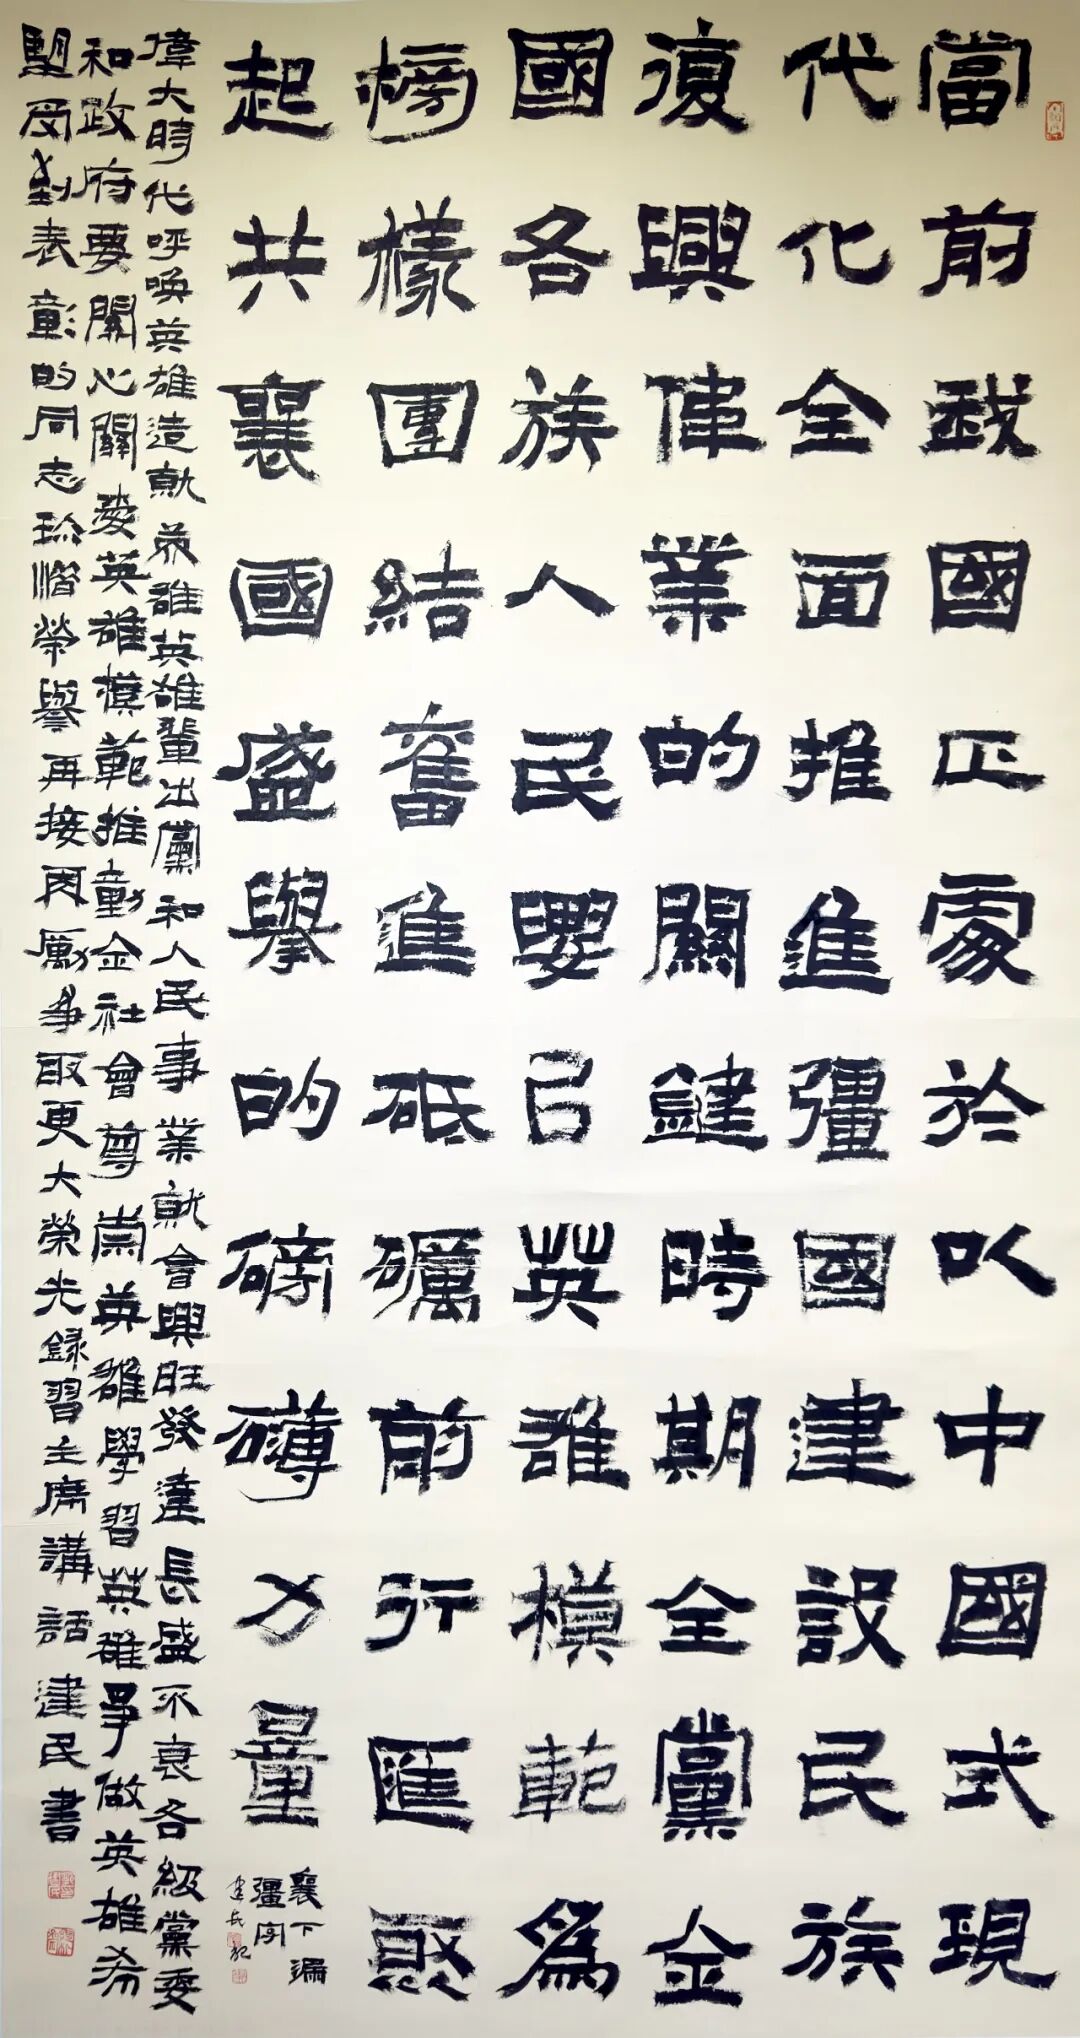 當前我國正處於以中國式現
代化全面推進彊國建設民族
復興偉業的關鍵時期全黨全
國各族人民要以英雄模範為
榜樣團結奮進砥礪前行匯聚
起共襄國盛舉的磅礴力量
襄下漏
彊字
建民記
偉大時代呼喚英雄造就英雄英雄輩出黨和人民事業就會興旺發達長盛不衰各級黨委
和政府要關心關愛英雄模範推動全社會尊崇英雄學習英雄爭做英雄希
望受到表彰的同志珍惜榮譽再接再勵爭取更大榮光録習主席講話建民書